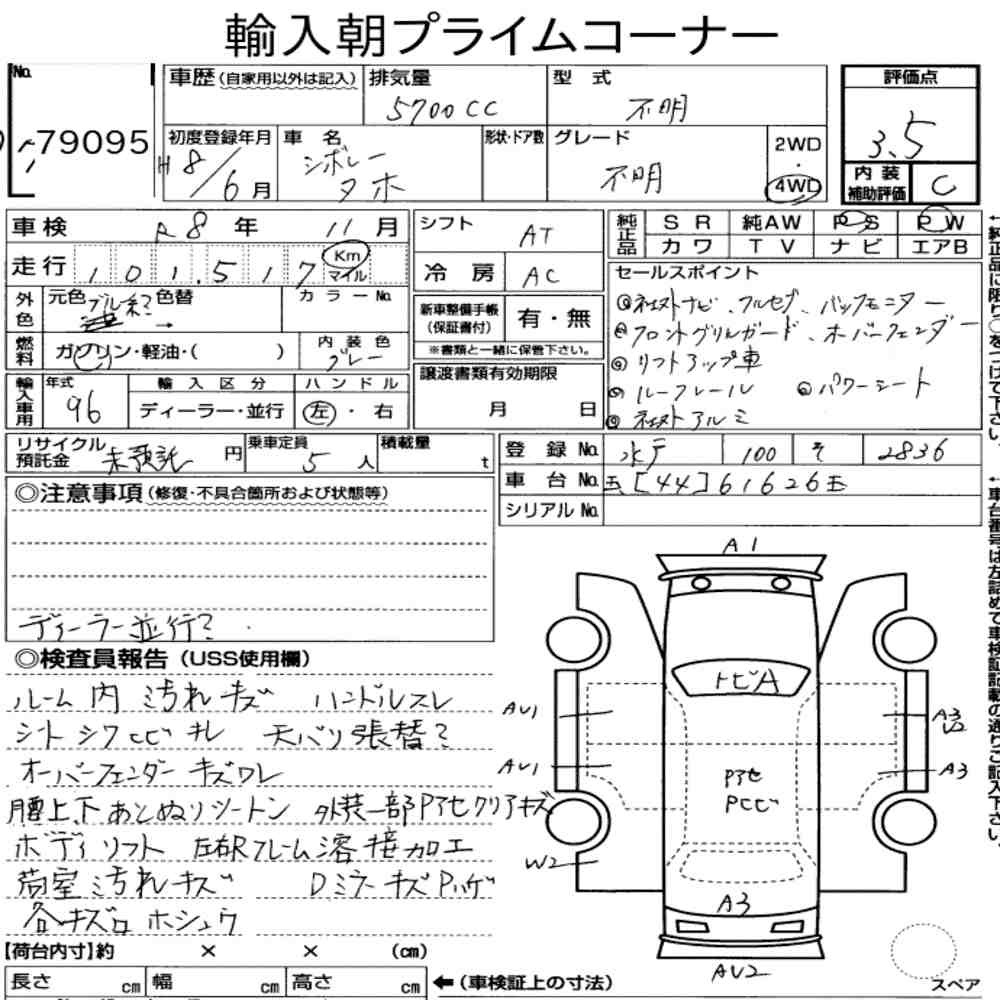 輸入朝プライムコーナー
No.
79095
車歴(自家用以外は記入)
排気量
5700CC
型 式
不明
評価点
3.5
初度登録年月
H 8/6月
車 名
シボレー
タホ
形状・ドア数
グレード
不明
2WD
・
4WD
内 装
補助評価
C
車検 R 8 年 11 月
シフト
AT
純正品
SR 純AW PS PW
カワ TV ナビ エアB
走行 101,517 Km
マイル
冷房
AC
セールスポイント
◎社外ナビ、フルセグ、バックモニター
◎フロントグリルガード、オーバーフェンダー
◎リフトアップ車
◎ルーフレール ◎パワーシート
◎社外アルミ
外色
元色 色替
→
カラーNo.
新車整備手帳
(保証書付)
有・無
※書類と一緒に保管下さい。
燃料
ガソリン・軽油・( )
内装色
グレー
譲渡書類有効期限
月 日
輸入車用
年式
96
輸入区分
ディーラー・並行
ハンドル
左・右
リサイクル
預託金 未預託 円
乗車定員
5 人
積載量
t
登録No. 水戸 100 そ 2836
車台No. 玉[44]61626玉
シリアルNo.
◎注意事項(修復・不具合箇所および状態等)
ディーラー並行?
◎検査員報告(USS使用欄)
ルーム内 汚れキズ ハンドルスレ
シートシワコゲキレ 天バリ張替?
オーバーフェンダー キズワレ
腰上下あとぬりツートン 外装一部Pアセクリアキズ
ボディリフト 左右Rフレーム溶接加工
荷室汚れキズ DミラーキズPハゲ
各キズロホシュウ
A1
トビA
AU1
AU1
W2
A3
U2
A3
Pアセ
Pとビ
A3
AU2
スペア
【荷台内寸】約 × × (cm)
長さ cm 幅 cm 高さ cm ←(車検証上の寸法)
←純正品に限り○をつけて下さい。
←車台番号は左詰めで車検証記載の通りご記入下さい。